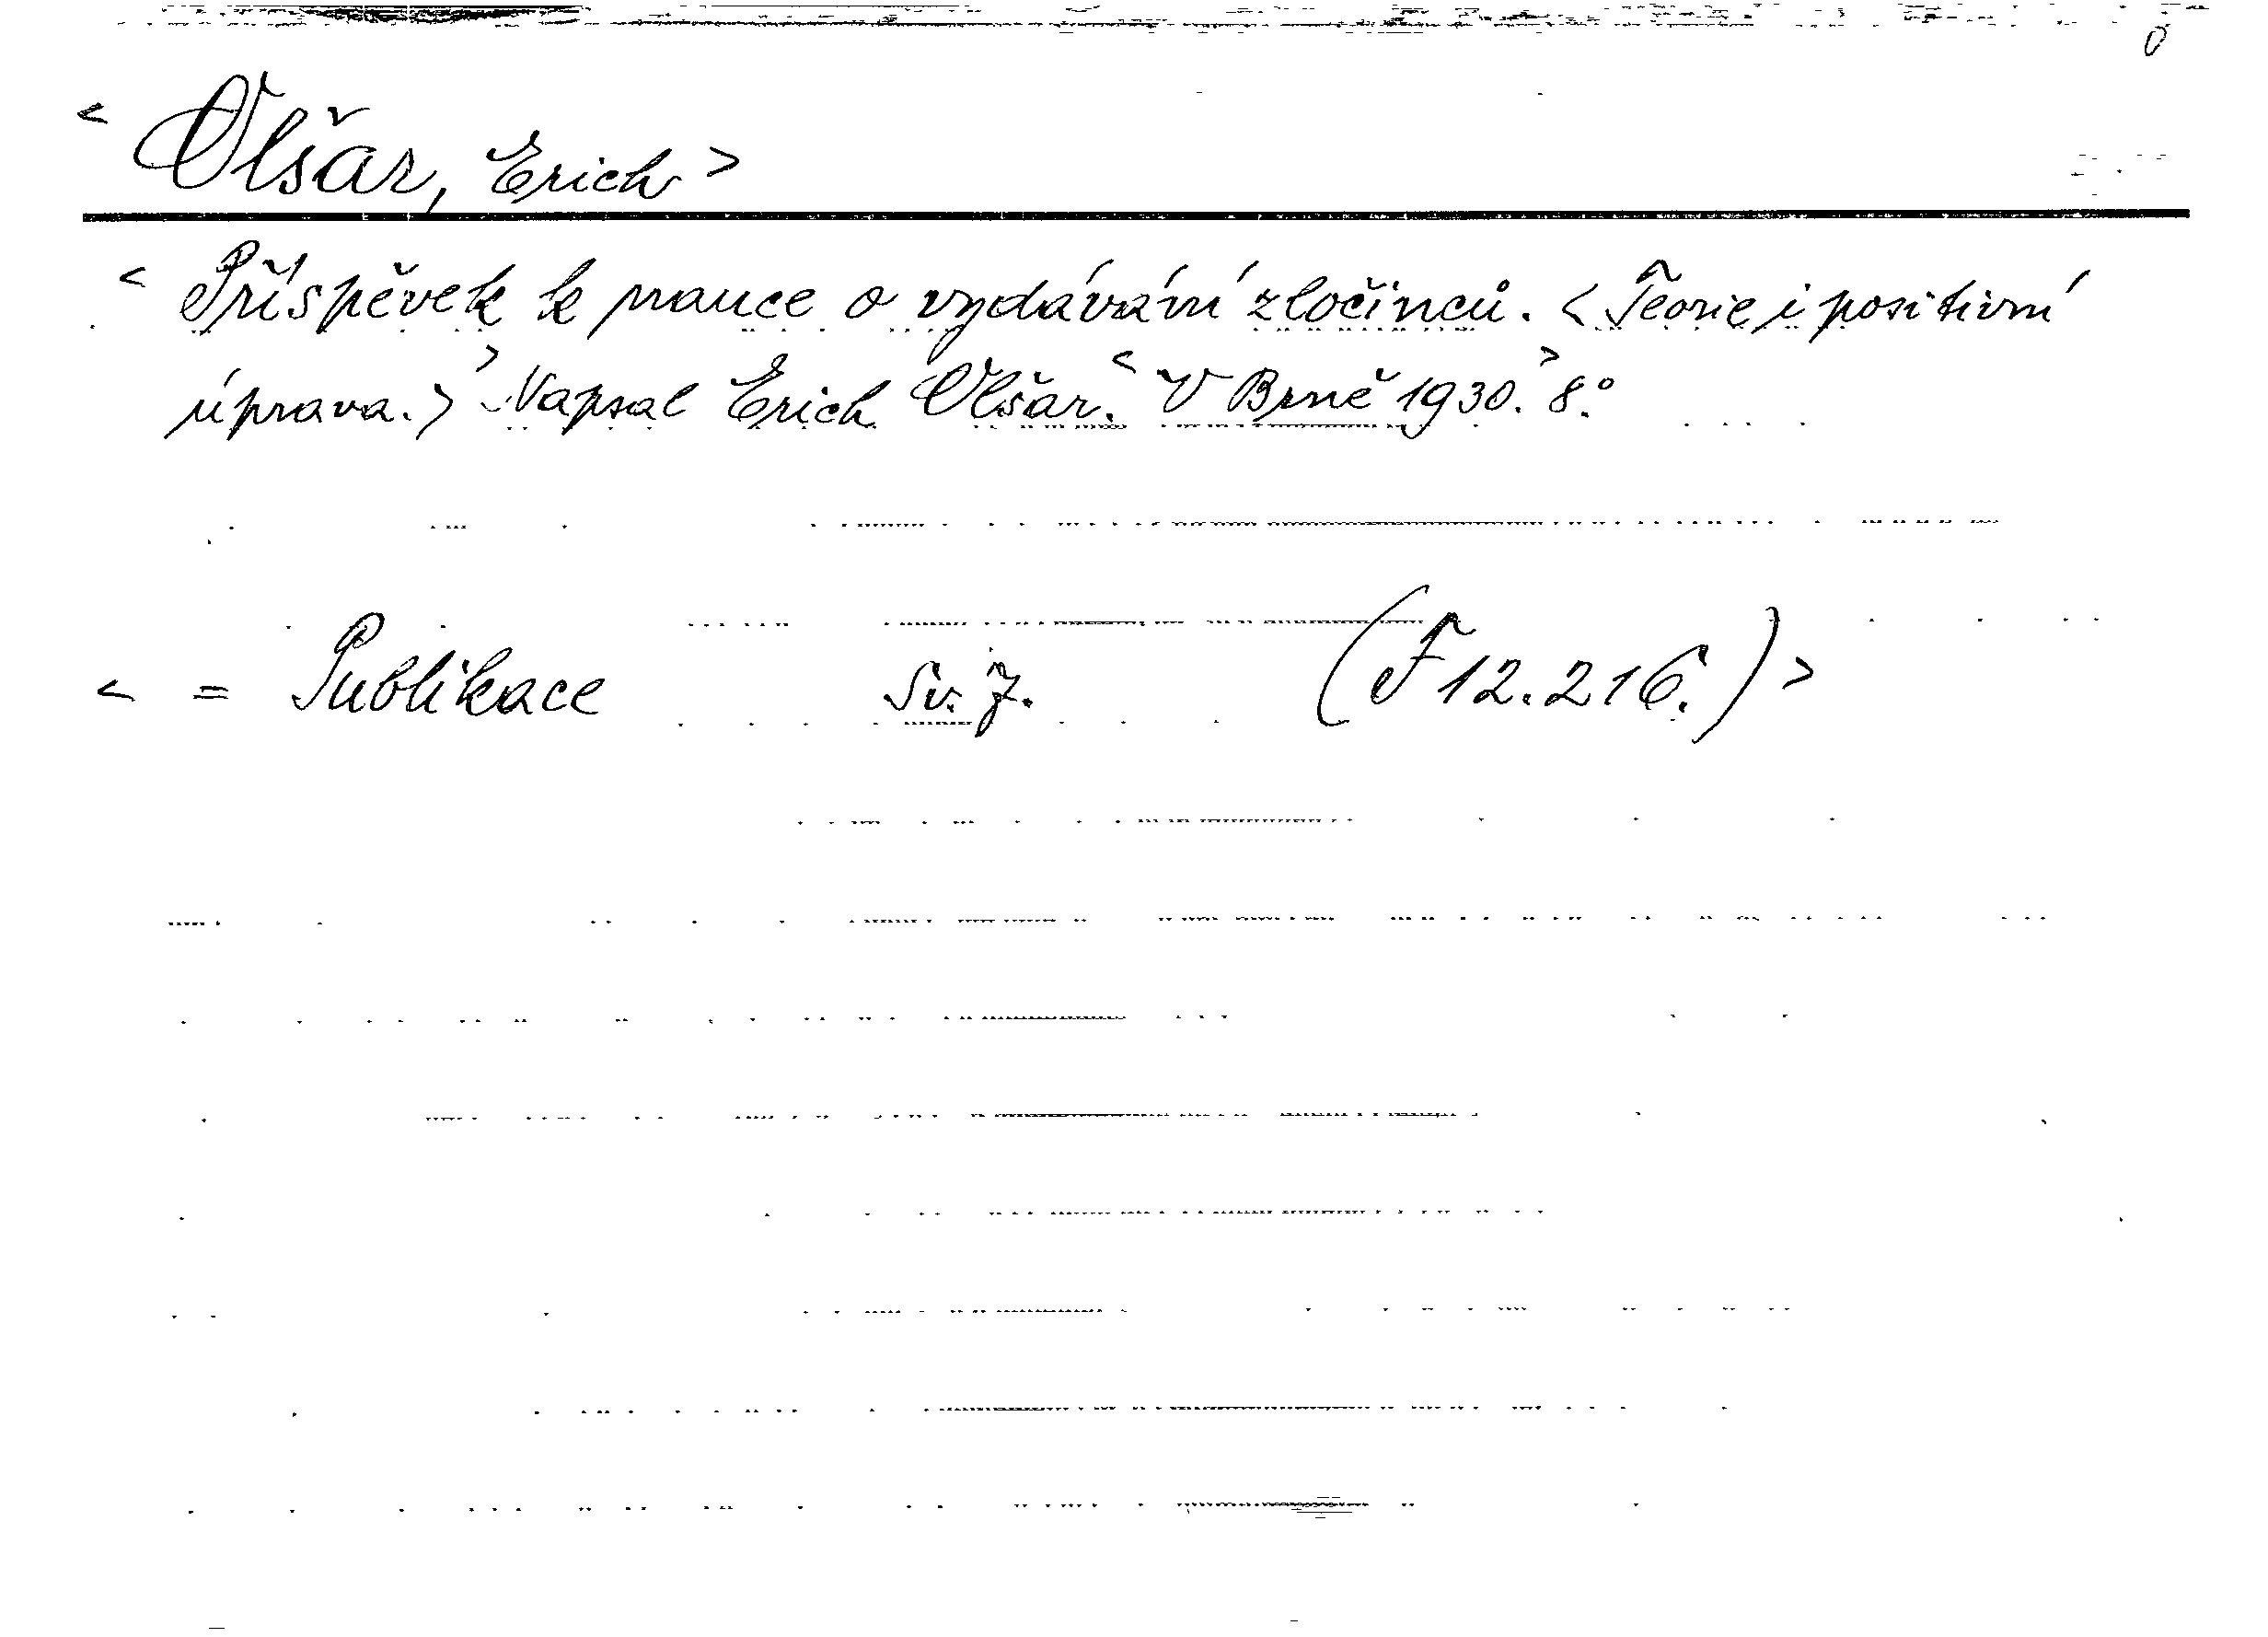 0
< Olšar, Erich >
< Příspěvek k nauce o vydávání zločinců. < Teorie i positivní
úprava. > > Napsal Erich Olšar. < V Brně 1930. > 8.°
< = Publikace sv. 7. (F 12.216.) >